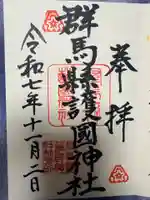 奉拝
群馬縣護國神社
令和七年十一月二日